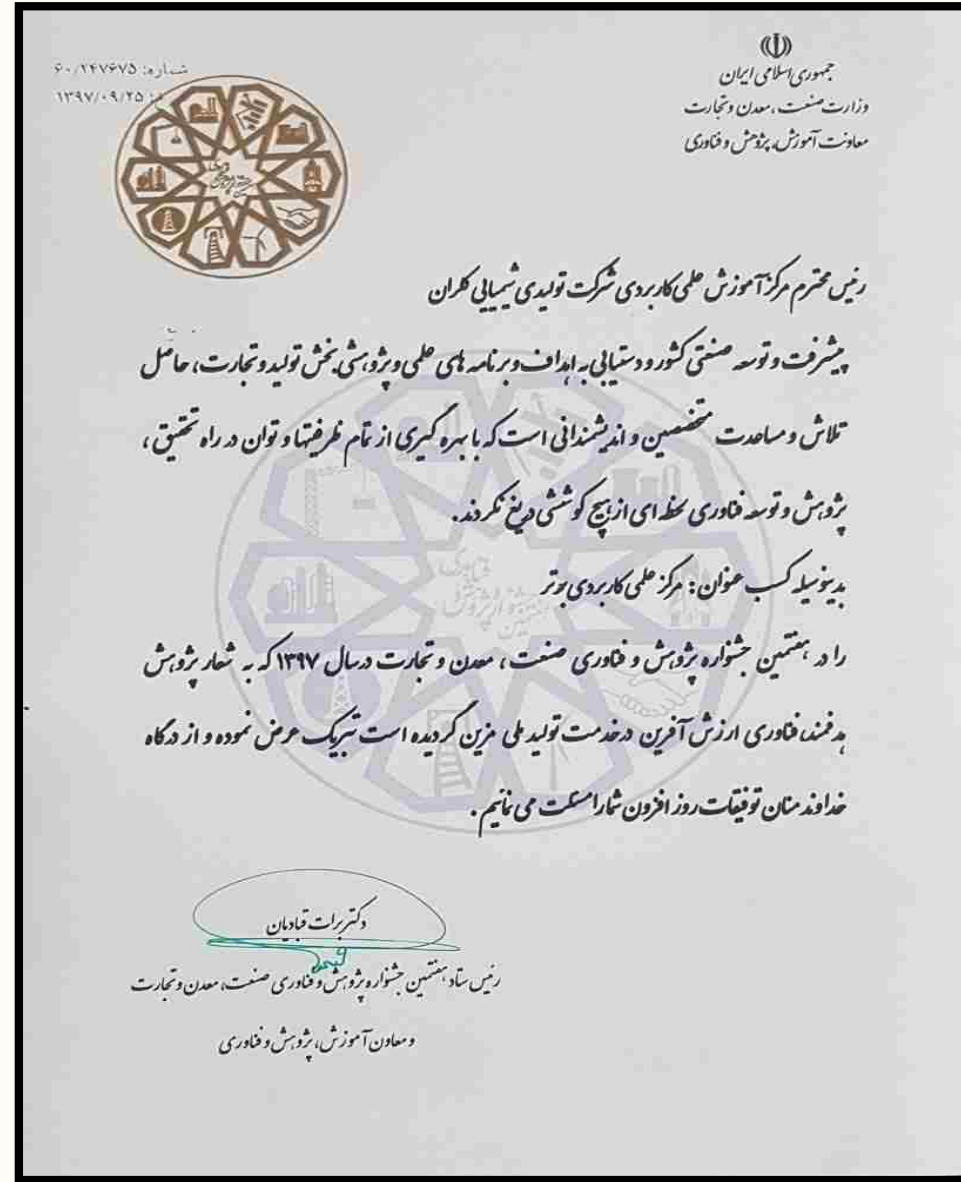 جمهوری اسلامی ایران
وزارت صنعت، معدن و تجارت
معاونت آموزش، پژوهش و فناوری
شماره: ۶۰/۲۴۷۶۷۵
۱۳۹۷/۰۹/۲۵
رئیس محترم مرکز آموزش علمی کاربردی شرکت تولیدی شیمیایی کلران
پیشرفت و توسعه صنعتی کشور و دستیابی به اهداف و برنامه های علمی و پژوهشی بخش تولید و تجارت، حاصل
تلاش و مساعدت متخصصین و اندیشمندانی است که با بهره گیری از تمام ظرفیتها و توان در راه تحقیق ،
پژوهش و توسعه فناوری لحظه ای از هیچ کوششی دریغ نکردند.
بدینوسیله کسب عنوان : مرکز علمی کاربردی برتر
را در هفتمین جشنواره پژوهش و فناوری صنعت ، معدن و تجارت درسال ۱۳۹۷ که به شعار پژوهش
هدفمند، فناوری ارزش آفرین درخدمت تولید ملی مزین گردیده است تبریک عرض نموده و از درگاه
خداوند منان توفیقات روز افزون شما را مسئلت می نمائیم .
دکتر برات قبادیان
رئیس ستاد هفتمین جشنواره پژوهش و فناوری صنعت، معدن و تجارت
و معاون آموزش، پژوهش و فناوری